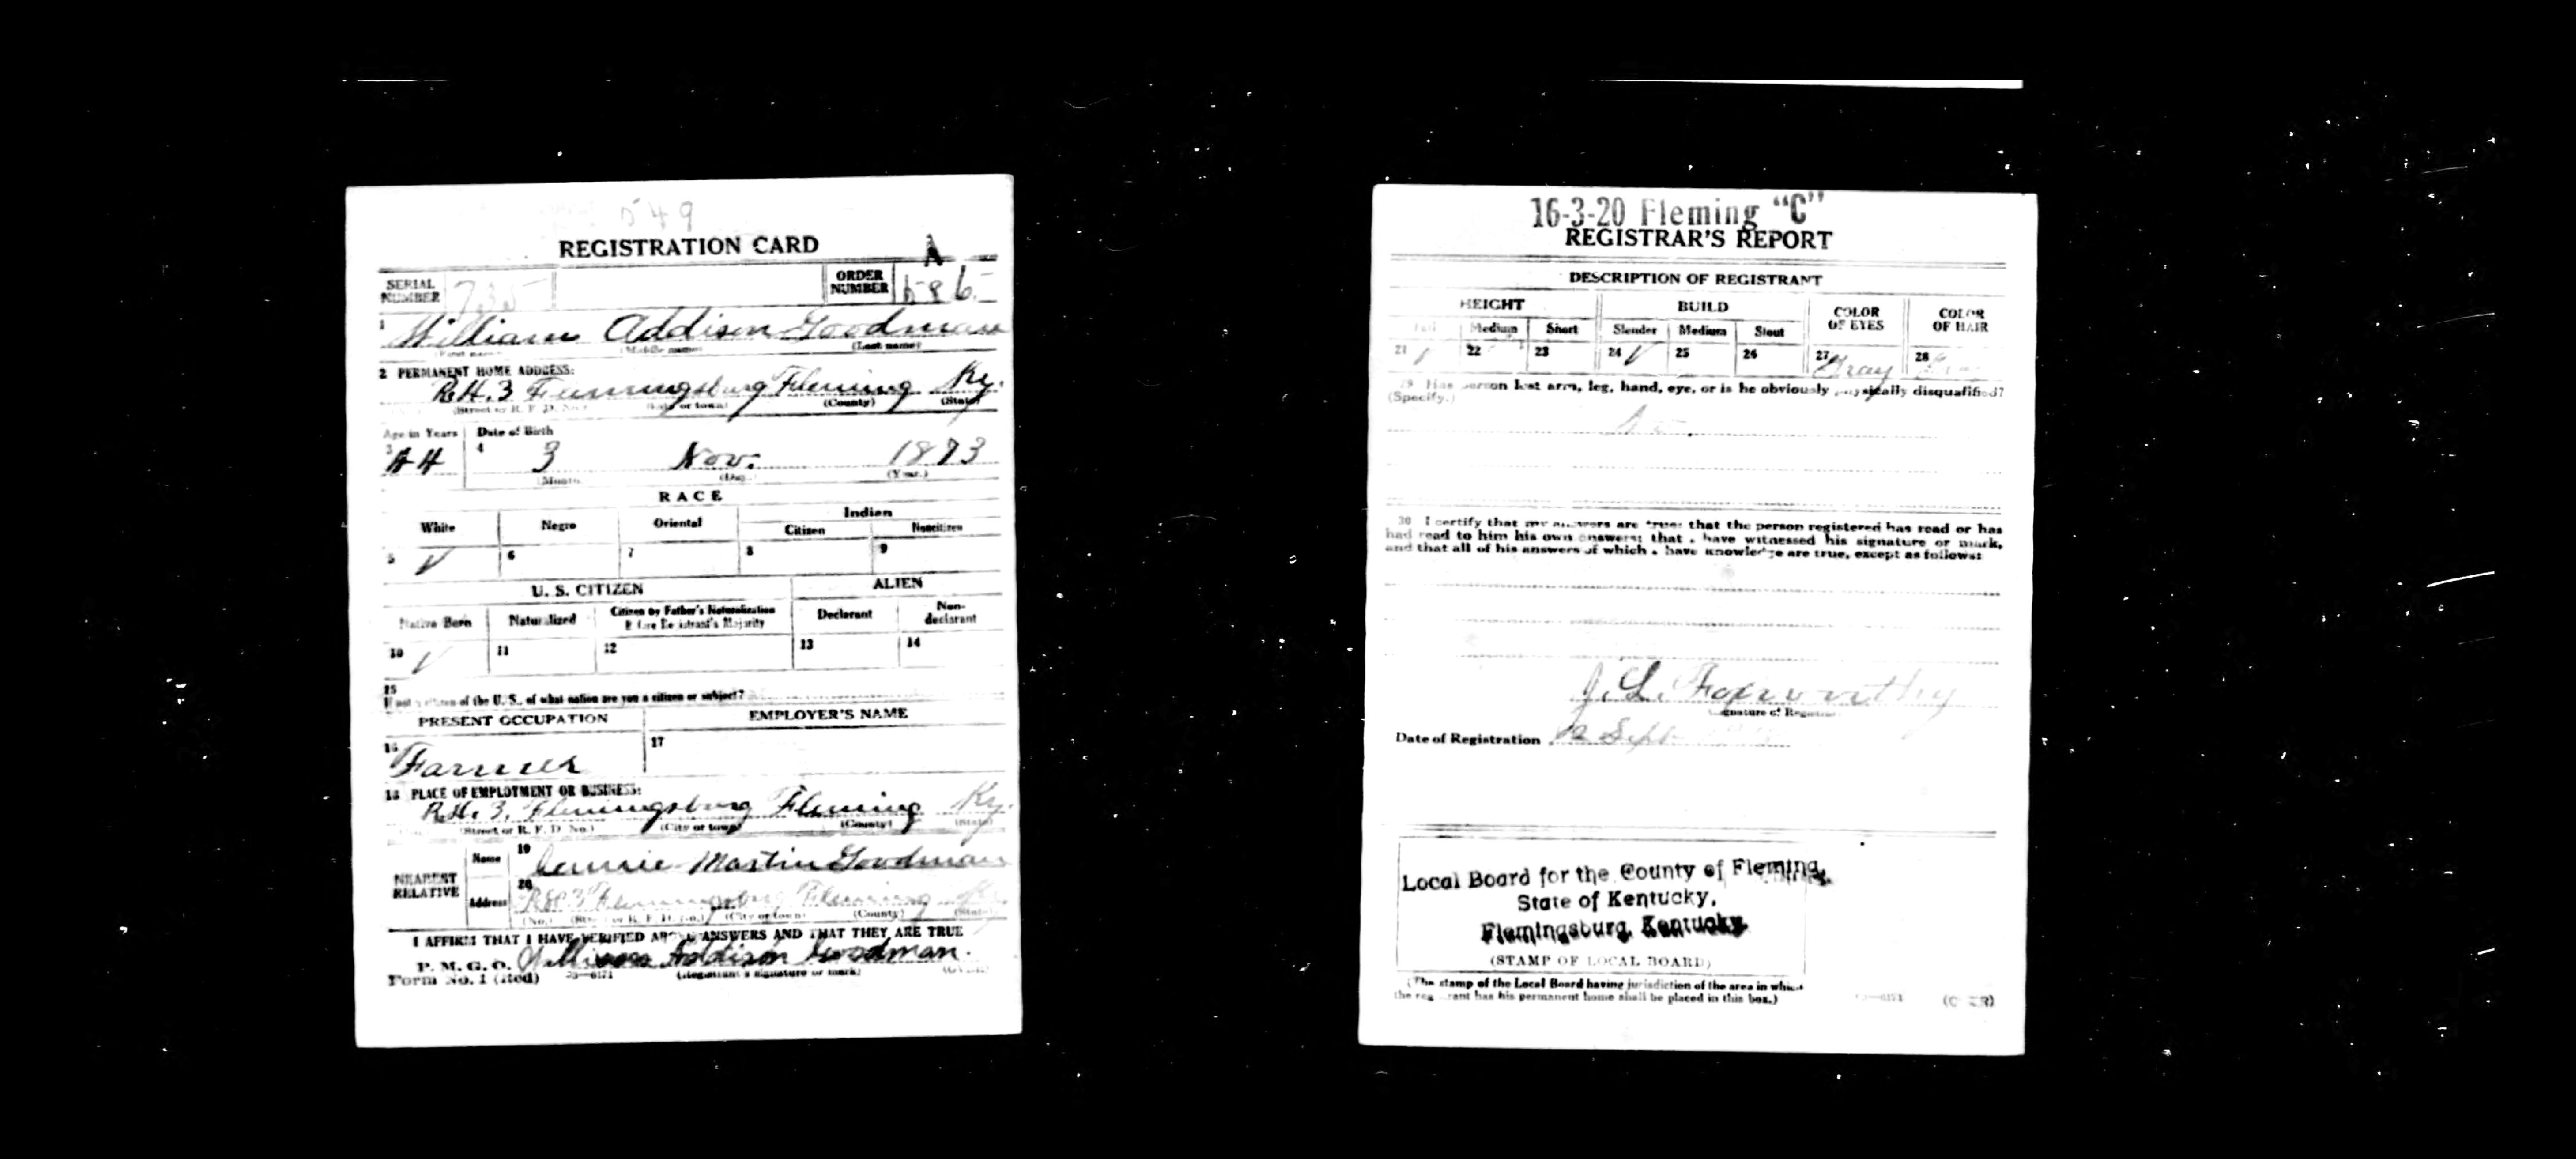 549
REGISTRATION CARD A
SERIAL NUMBER 735 ORDER NUMBER
1 William Addison Goodman
(First name) (Middle name) (Last name)
2 PERMANENT HOME ADDRESS:
R.H. 3 Flemingsburg Fleming Ky.
(Street or R. F. D. No.) (City or town) (County) (State)
Age in Years Date of Birth
3 44 4 3 Nov. 1873
(Month) (Day) (Year.)
RACE
White Negro Oriental Indian
Citizen Noncitizen
5 ✓ 6 7 8 9
U. S. CITIZEN ALIEN
Native Born Naturalized Citizen by Father's Naturalization Before Registrant's Majority Declarant Non-declarant
10 ✓ 11 12 13 14
15
If not a citizen of the U. S., of what nation are you a citizen or subject?
PRESENT OCCUPATION EMPLOYER'S NAME
16 Farmer 17
18 PLACE OF EMPLOYMENT OR BUSINESS:
R.H. 3, Flemingsburg Fleming Ky.
(Street or R. F. D. No.) (City or town) (County) (State)
NEAREST RELATIVE
Name 19 Martin Goodman
Address 20 3 Flemingsburg Fleming Ky.
(No.) (Street or R. F. D. No.) (City or town) (County) (State)
I AFFIRM THAT I HAVE VERIFIED ABOVE ANSWERS AND THAT THEY ARE TRUE
P. M. G. O. William Addison Goodman.
Form No. 1 (Red) 03—6171 (Registrant's signature or mark) (OVER)
16-3-20 Fleming "C"
REGISTRAR'S REPORT
DESCRIPTION OF REGISTRANT
HEIGHT BUILD COLOR OF EYES COLOR OF HAIR
Tall Medium Short Slender Medium Stout
21 ✓ 22 23 24 ✓ 25 26 27 Gray 28
29 Has person lost arm, leg, hand, eye, or is he obviously physically disqualified?
(Specify.)
No
30 I certify that my answers are true; that the person registered has read or has
had read to him his own answers; that I have witnessed his signature or mark,
and that all of his answers of which I have knowledge are true, except as follows:
J. L. Foxworthy
(Signature of Registrar)
Date of Registration 12 Sept
Local Board for the County of Fleming,
State of Kentucky,
Flemingsburg, Kentucky.
(STAMP OF LOCAL BOARD)
(The stamp of the Local Board having jurisdiction of the area in which
the registrant has his permanent home shall be placed in this box.)
03—6171 (OVER)